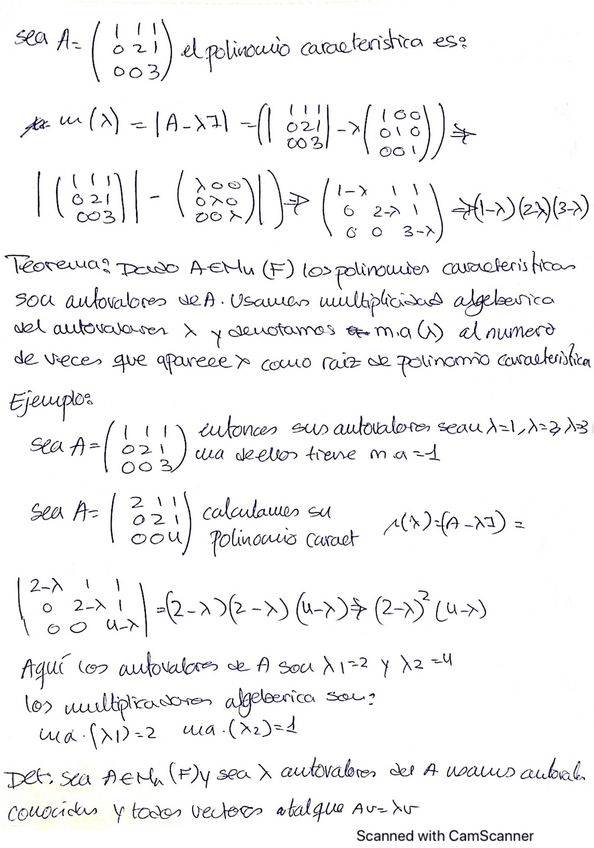 sea A = ( 1 1 1 / 0 2 1 / 0 0 3 ) el polinomio caracteristica es:
m(λ) = |A - λI| = (| 1 1 1 / 0 2 1 / 0 0 3 | - λ ( 1 0 0 / 0 1 0 / 0 0 1 )) ⇒
|( 1 1 1 / 0 2 1 / 0 0 3 )| - ( λ 0 0 / 0 λ 0 / 0 0 λ )|) ⇒ ( 1-λ 1 1 / 0 2-λ 1 / 0 0 3-λ ) ⇒ (1-λ)(2-λ)(3-λ)
Teorema: Dado A∈Mn(F) los polinomios caracteristicas
son autovalores de A. Usamos multiplicidad algeberica
del autovalores λ y denotamos m.a(λ) al numero
de veces que aparece λ como raiz de polinomio caracteristica
Ejemplo:
sea A = ( 1 1 1 / 0 2 1 / 0 0 3 ) entonces sus autovalores sean λ=1, λ=2, λ=3
una de ellos tiene m.a = 1
sea A = ( 2 1 1 / 0 2 1 / 0 0 4 ) calculamos su
polinomio caract (λ) = (A - λI) =
| 2-λ 1 1 / 0 2-λ 1 / 0 0 4-λ | = (2-λ)(2-λ)(4-λ) ⇒ (2-λ)² (4-λ)
Aquí los autovalores de A son λ1=2 y λ2=4
los multiplicadores algeberica son:
ma.(λ1)=2 ma.(λ2)=1
Det: sea A∈Mn(F) y sea λ autovalores del A usamos
conocidas y todos vectores atalque Av=λv
Scanned with CamScanner